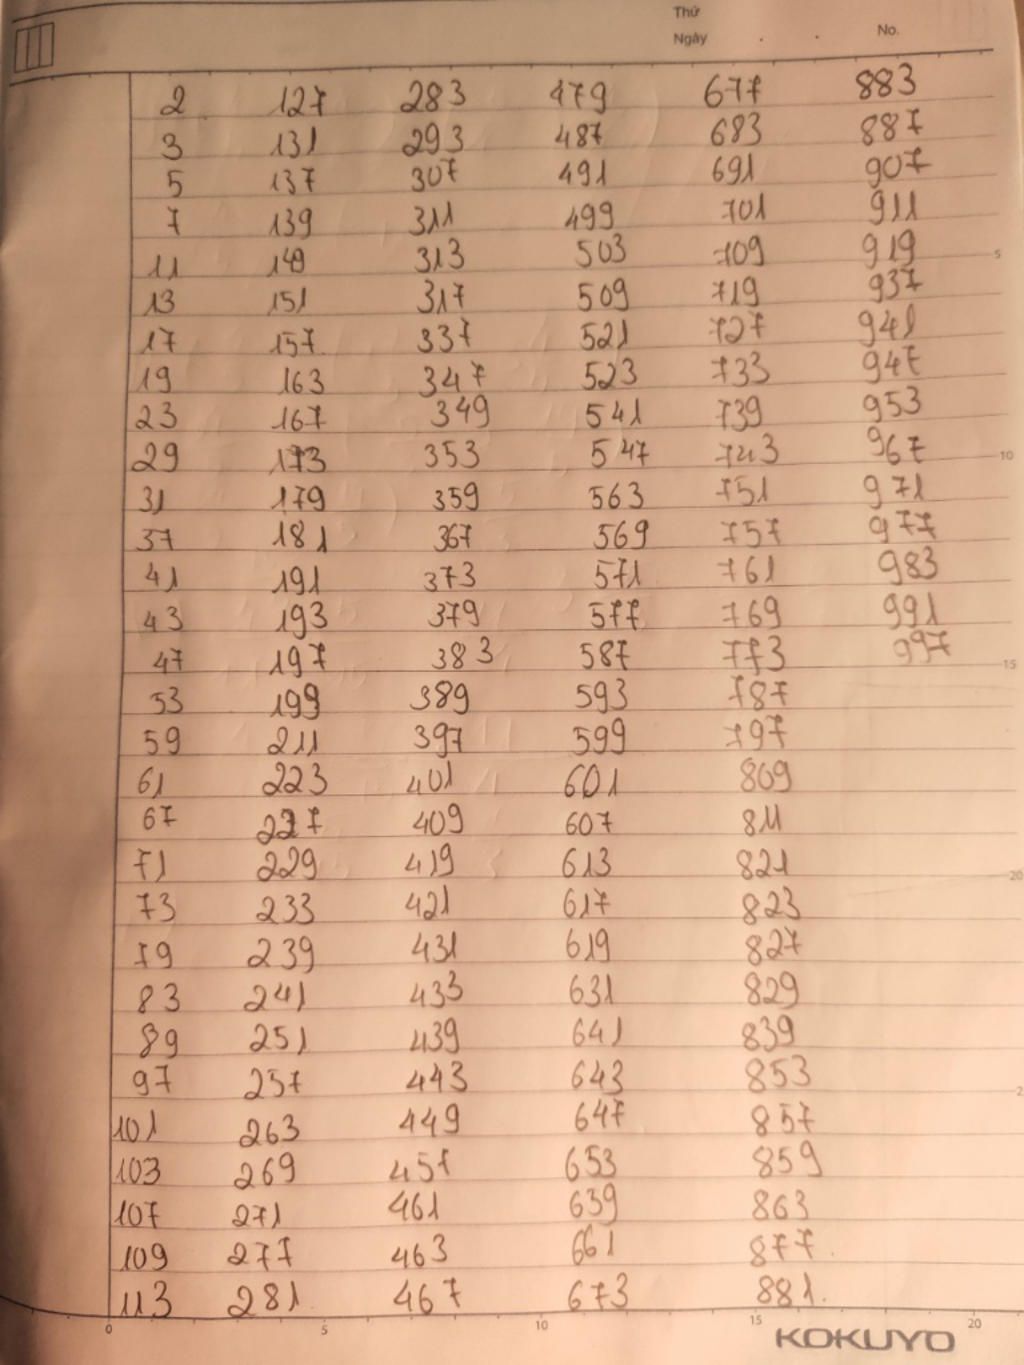 Thứ
Ngày . . No.
2 127 283 479 677 883
3 131 293 487 683 887
5 137 307 491 691 907
7 139 311 499 701 911
11 149 313 503 709 919
13 151 317 509 719 937
17 157 337 521 727 941
19 163 347 523 733 947
23 167 349 541 739 953
29 173 353 547 743 967
31 179 359 563 751 971
37 181 367 569 757 977
41 191 373 571 761 983
43 193 379 577 769 991
47 197 383 587 773 997
53 199 389 593 787
59 211 397 599 797
61 223 401 601 809
67 227 409 607 811
71 229 419 613 821
73 233 421 617 823
79 239 431 619 827
83 241 433 631 829
89 251 439 641 839
97 257 443 643 853
101 263 449 647 857
103 269 457 653 859
107 271 461 659 863
109 277 463 661 877
113 281 467 673 881
0 5 10 15 20
KOKUYO